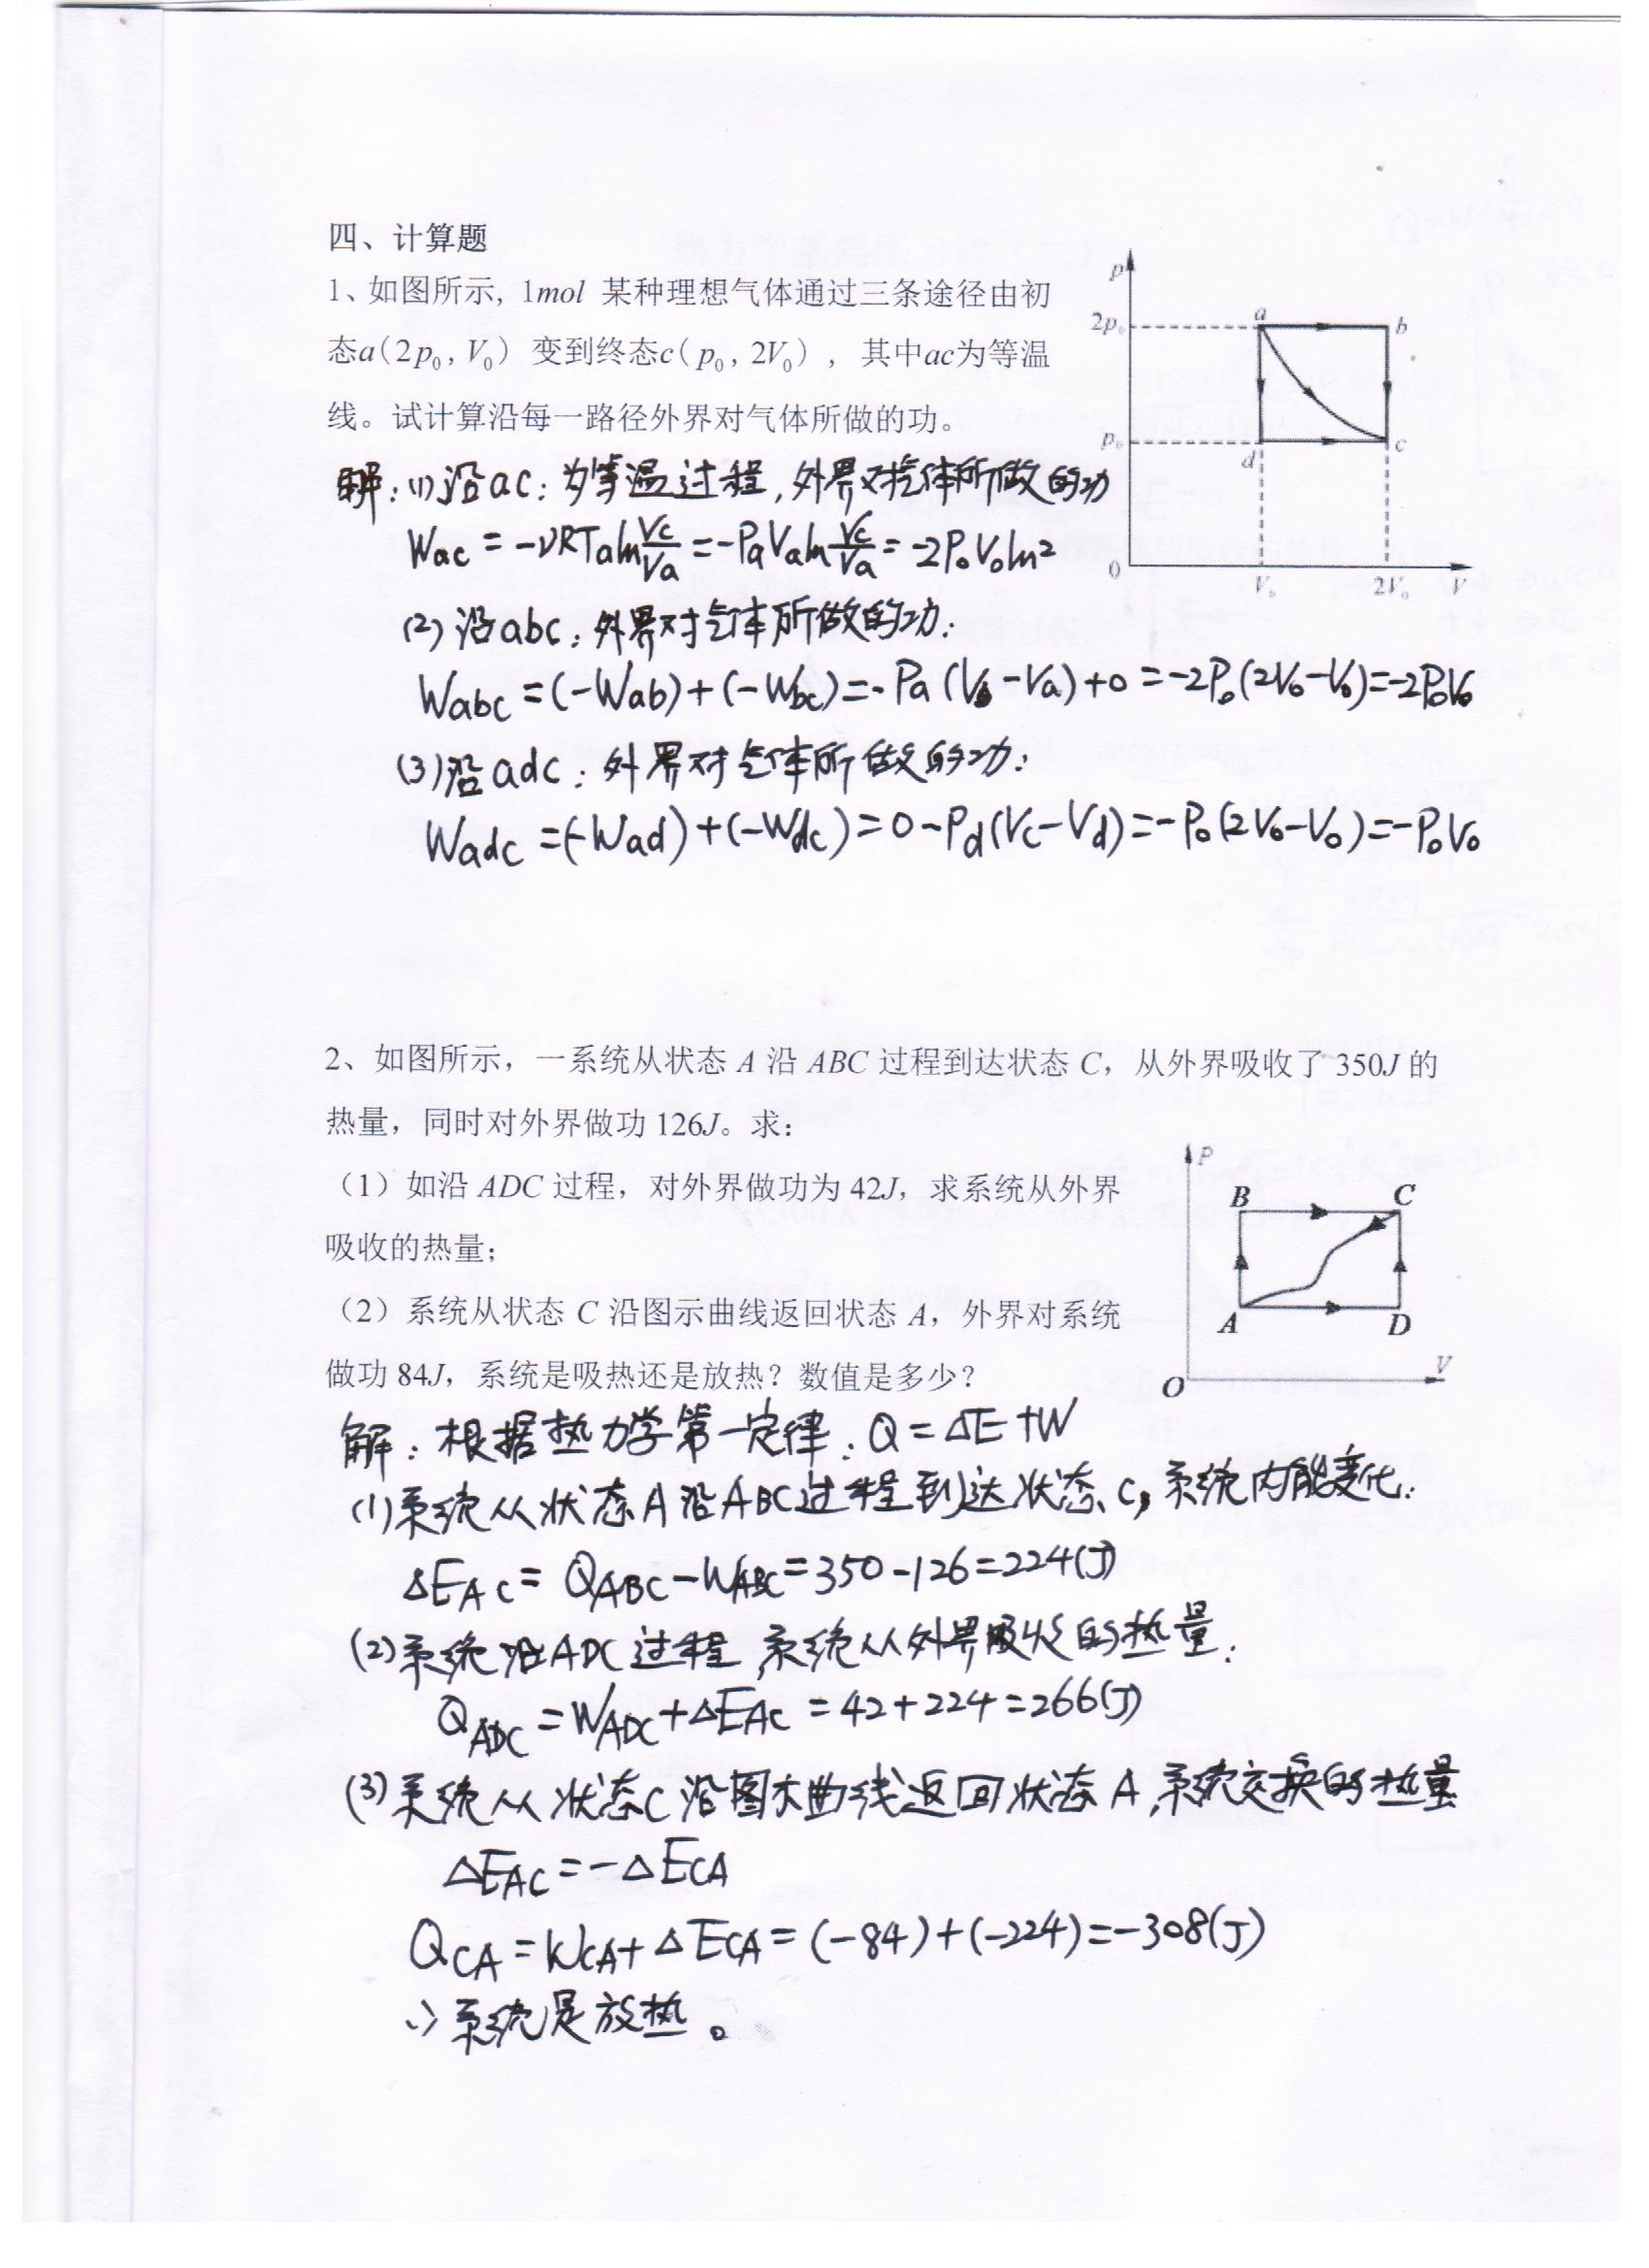 四、计算题
1、如图所示, 1mol 某种理想气体通过三条途径由初
态a(2p₀, V₀) 变到终态c(p₀, 2V₀) , 其中ac为等温
线。试计算沿每一路径外界对气体所做的功。
p
2p₀
a
b
p₀
d
c
0
V₀
2V₀
V
解:(1)沿ac:为等温过程,外界对气体所做的功
Wac = -νRTa ln Vc/Va = -PaVa ln Vc/Va = -2P₀V₀ln2
(2)沿abc:外界对气体所做的功:
Wabc = (-Wab)+(-Wbc)=-Pa(Vb-Va)+0=-2P₀(2V₀-V₀)=-2P₀V₀
(3)沿adc:外界对气体所做的功:
Wadc =(-Wad)+(-Wdc)=0-Pd(Vc-Vd)=-P₀(2V₀-V₀)=-P₀V₀
2、如图所示,一系统从状态 A 沿 ABC 过程到达状态 C,从外界吸收了 350J 的
热量,同时对外界做功 126J。求:
(1)如沿 ADC 过程,对外界做功为 42J,求系统从外界
吸收的热量;
(2)系统从状态 C 沿图示曲线返回状态 A,外界对系统
做功 84J,系统是吸热还是放热?数值是多少?
P
B
C
A
D
O
V
解:根据热力学第一定律:Q=ΔE+W
(1)系统从状态A沿ABC过程到达状态C,系统内能变化:
ΔEAC = QABC-WABC=350-126=224(J)
(2)系统沿ADC过程,系统从外界吸收的热量:
QADC =WADC+ΔEAC =42+224=266(J)
(3)系统从状态C沿图示曲线返回状态A,系统交换的热量
ΔEAC=-ΔECA
QCA=WCA+ΔECA=(-84)+(-224)=-308(J)
∴系统是放热。